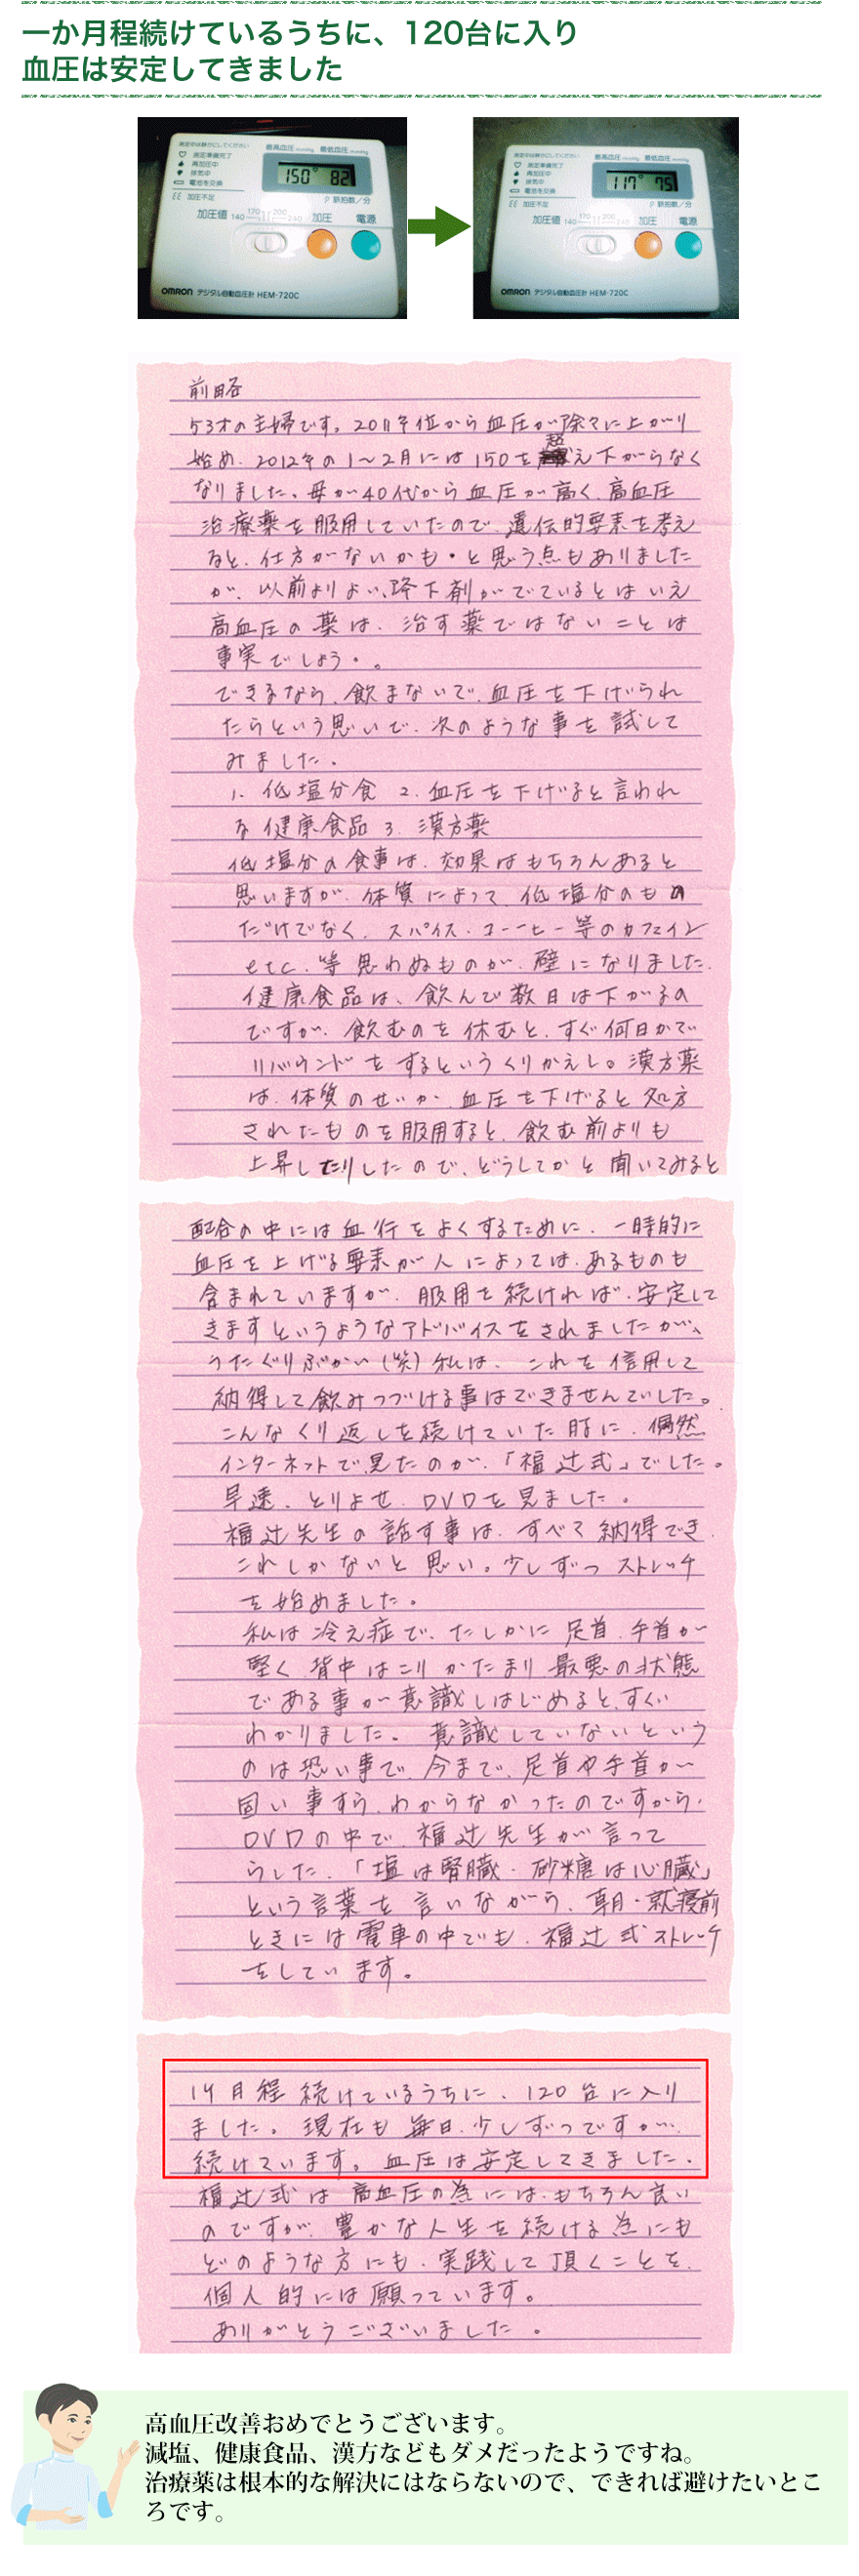 一か月程続けているうちに、120台に入り
血圧は安定してきました
測定中は静かにしてください
最高血圧 mmHg 最低血圧 mmHg
測定準備完了
再加圧中
排気中
電池を交換
EE 加圧不足
150 82
P 脈拍数/分
加圧値 140 170 200 240 加圧 電源
OMRON デジタル自動血圧計 HEM-720C
測定中は静かにしてください
最高血圧 mmHg 最低血圧 mmHg
測定準備完了
再加圧中
排気中
電池を交換
EE 加圧不足
117 75
P 脈拍数/分
加圧値 140 170 200 240 加圧 電源
OMRON デジタル自動血圧計 HEM-720C
前略
53才の主婦です。2011年位から血圧が除々に上がり
始め、2012年の1〜2月には150を超え下がらなく
なりました。母が40代から血圧が高く、高血圧
治療薬を服用していたので、遺伝的要素を考え
ると、仕方がないかも・と思う点もありました
が、以前よりよい降下剤がでているとはいえ
高血圧の薬は、治す薬ではないことは
事実でしょう・。
できるなら、飲まないで、血圧を下げられ
たらという思いで、次のような事を試して
みました。
1. 低塩分食 2. 血圧を下げると言われ
る健康食品 3. 漢方薬
低塩分の食事は、効果はもちろんあると
思いますが、体質によって、低塩分のもの
だけでなく、スパイス・コーヒー等のカフェイン
etc. 等思わぬものが、壁になりました。
健康食品は、飲んで数日は下がるの
ですが、飲むのを休むと、すぐ何日かで
リバウンドをするというくりかえし。漢方薬
は、体質のせいか、血圧を下げると処方
されたものを服用すると、飲む前よりも
上昇したりしたので、どうしてかと聞いてみると
配合の中には血行をよくするために、一時的に
血圧を上げる要素が人によっては、あるものも
含まれていますが、服用を続ければ、安定して
きますというようなアドバイスをされましたが、
うたぐりぶかい(笑)私は、これを信用して
納得して飲みつづける事はできませんでした。
こんなくり返しを続けていた時に、偶然
インターネットで見たのが、「福辻式」でした。
早速、とりよせ、DVDを見ました。
福辻先生の話す事は、すべて納得でき、
これしかないと思い。少しずつストレッチ
を始めました。
私は冷え症で、たしかに足首、手首が
堅く、背中はこりかたまり最悪の状態
である事が意識しはじめると、すぐに
わかりました。意識していないという
のは恐い事で、今まで、足首や手首が
固い事すら、わからなかったのですから、
DVDの中で、福辻先生が言って
らした、「塩は腎臓・砂糖は心臓」
という言葉を言いながら、朝・就寝前
ときには電車の中でも、福辻式ストレッチ
をしています。
1ケ月程続けているうちに、120台に入り
ました。現在も毎日、少しずつですが…
続けています。血圧は安定してきました。
福辻式は高血圧の為には、もちろん良い
のですが、豊かな人生を続ける為にも
どのような方にも、実践して頂くことを、
個人的には願っています。
ありがとうございました。
高血圧改善おめでとうございます。
減塩、健康食品、漢方などもダメだったようですね。
治療薬は根本的な解決にはならないので、できれば避けたいとこ
ろです。